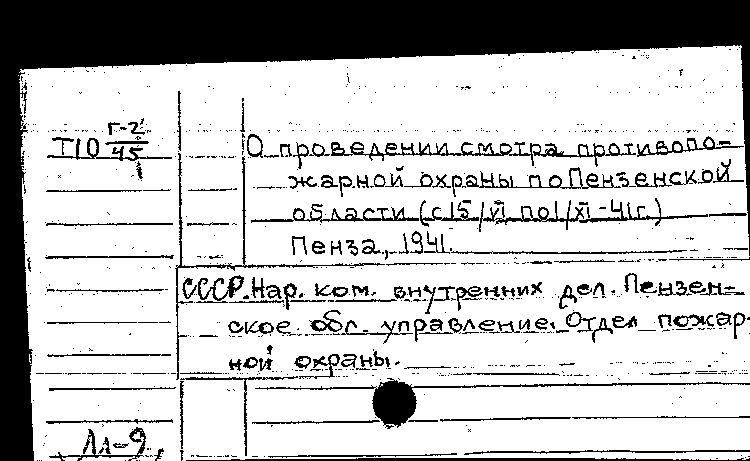 Т10 Г-2/45
О проведении смотра противопо-
жарной охраны по Пензенской
области (с 15/VI по 1/XI-41г.)
Пенза, 1941.
СССР. Нар. ком. внутренних дел. Пензен-
ское обл. управление. Отдел пожар-
ной охраны.